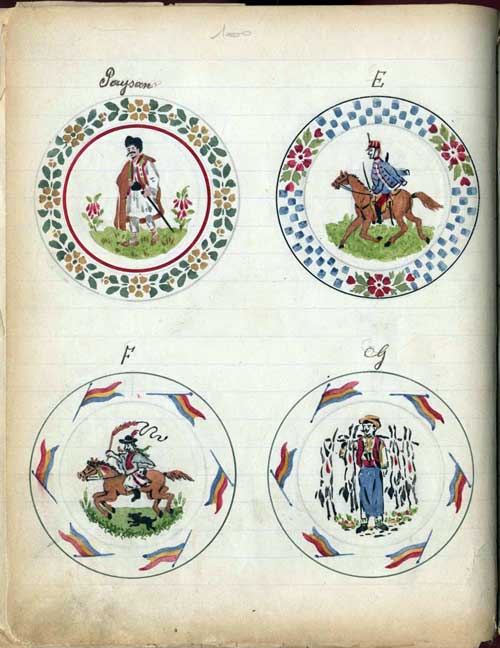 1000
Paysan
E
F
G